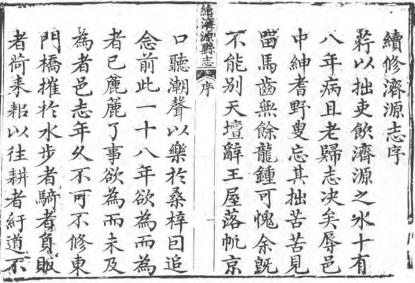 續修濟源志序
荐以拙吏飲濟源之水十有
八年病且老歸志决矣辱邑
中紳耆野叟忘其拙苦苦見
畱馬齒無餘龍鍾可愧余既
不能別天壇辭王屋落帆京
續濟源縣志 序
口聽潮聲以樂於桑梓囙追
念前此一十八年欲為而為
者已麄麄了事欲為而未及
為者邑志年久不可不修東
門橋摧於水步者騎者負販
者荷耒耜以往耕者紆道不